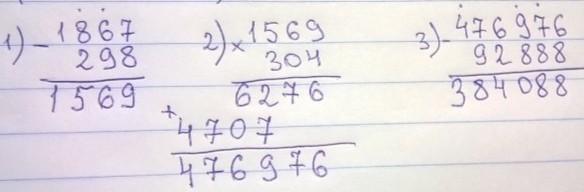 1) - 1867
298
1569
2) × 1569
304
6276
+ 4707
476976
3) - 476976
92888
384088